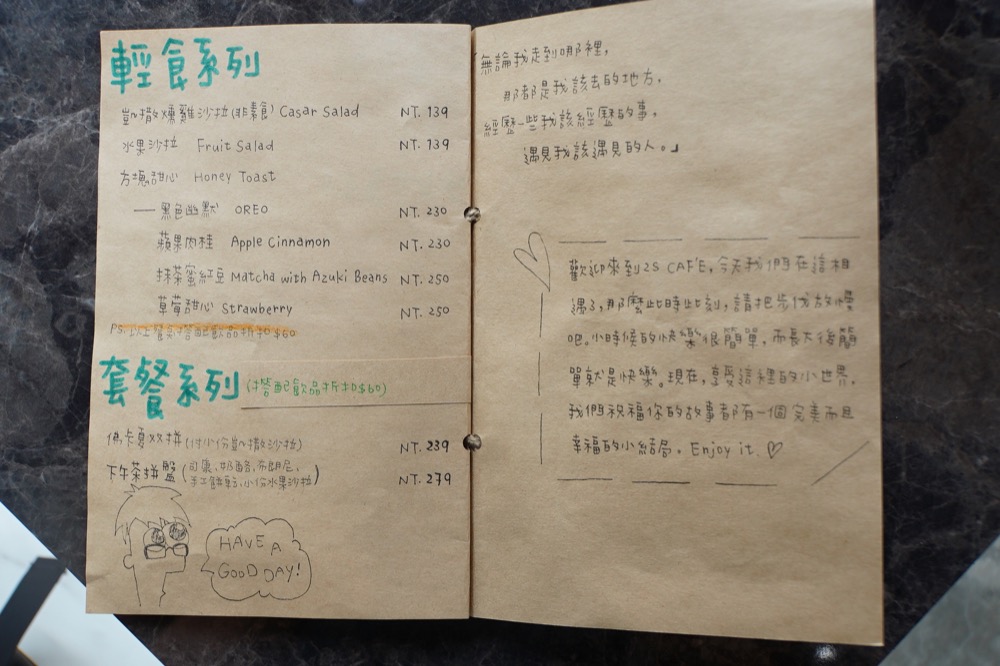 輕食系列
凱撒燻雞沙拉(非素食) Casar Salad NT. 139
水果沙拉 Fruit Salad NT. 139
方塊甜心 Honey Toast
——黑色幽默 OREO NT. 230
蘋果肉桂 Apple Cinnamon NT. 230
抹茶蜜紅豆 Matcha with Azuki Beans NT. 250
草莓甜心 Strawberry NT. 250
PS.以上餐點搭配飲品折扣$60
套餐系列(搭配飲品折扣$60)
佛卡夏双拼(付小份凱撒沙拉) NT. 239
下午茶拼盤(司康、奶酪、布朗尼、
手工餅乾、小份水果沙拉) NT. 279
HAVE A
GOOD DAY!
「無論我走到哪裡,
那都是我該去的地方,
經歷一些我該經歷的事,
遇見我該遇見的人。」
歡迎來到2S CAFE,今天我們在這相
遇了,那麼此時此刻,請把步伐放慢
吧。小時候的快樂很簡單,而長大後簡
單就是快樂。現在,享受這裡的小世界,
我們祝福你的故事都有一個完美而且
幸福的小結局。Enjoy it. ♡